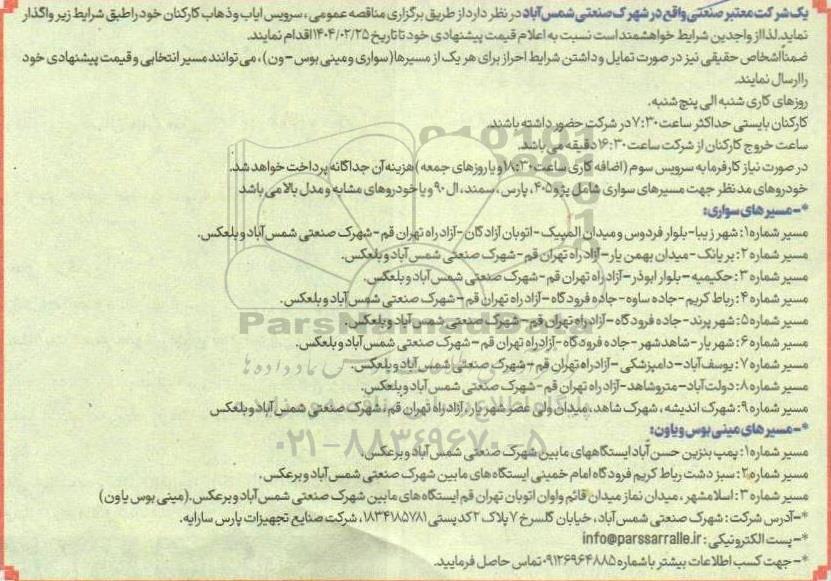 یک شرکت معتبر صنعتی واقع در شهرک صنعتی شمس آباد در نظر دارد از طریق برگزاری مناقصه عمومی، سرویس ایاب و ذهاب کارکنان خود را طبق شرایط زیر واگذار
نماید. لذا از واجدین شرایط خواهشمند است نسبت به اعلام قیمت پیشنهادی خود تا تاریخ ۱۴۰۴/۰۲/۲۵ اقدام نمایند.
ضمناً اشخاص حقیقی نیز در صورت تمایل و داشتن شرایط احراز برای هر یک از مسیرها (سواری و مینی بوس - ون)، می توانند مسیر انتخابی و قیمت پیشنهادی خود
را ارسال نمایند.
روزهای کاری شنبه الی پنج شنبه.
کارکنان بایستی حداکثر ساعت ۷:۳۰ در شرکت حضور داشته باشند.
ساعت خروج کارکنان از شرکت ساعت ۱۶:۳۰ دقیقه می باشد.
در صورت نیاز کارفرما به سرویس سوم (اضافه کاری ساعت ۱۸:۳۰ و یا روزهای جمعه) هزینه آن جداگانه پرداخت خواهد شد.
خودروهای مد نظر جهت مسیرهای سواری شامل پژو ۴۰۵، پارس، سمند، ال ۹۰ و یا خودروهای مشابه و مدل بالا می باشد
*- مسیرهای سواری:
مسیر شماره ۱: شهر زیبا- بلوار فردوس و میدان المپیک - اتوبان آزادگان - آزاد راه تهران قم - شهرک صنعتی شمس آباد و بلعکس.
مسیر شماره ۲: بریانک - میدان بهمن یار - آزاد راه تهران قم - شهرک صنعتی شمس آباد و بلعکس.
مسیر شماره ۳: حکیمیه - بلوار ابوذر - آزاد راه تهران قم - شهرک صنعتی شمس آباد و بلعکس.
مسیر شماره ۴: رباط کریم - جاده ساوه - جاده فرودگاه - آزاد راه تهران قم - شهرک صنعتی شمس آباد و بلعکس.
مسیر شماره ۵: شهر پرند - جاده فرودگاه - آزاد راه تهران قم - شهرک صنعتی شمس آباد و بلعکس.
مسیر شماره ۶: شهریار - شاهدشهر - جاده فرودگاه - آزاد راه تهران قم - شهرک صنعتی شمس آباد و بلعکس.
مسیر شماره ۷: یوسف آباد - دامپزشکی - آزاد راه تهران قم - شهرک صنعتی شمس آباد و بلعکس.
مسیر شماره ۸: دولت آباد - مترو شاهد - آزاد راه تهران قم - شهرک صنعتی شمس آباد و بلعکس.
مسیر شماره ۹: شهرک اندیشه، شهرک شاهد، میدان ولی عصر شهریار، آزاد راه تهران قم، شهرک صنعتی شمس آباد و بلعکس
*- مسیرهای مینی بوس و یا ون:
مسیر شماره ۱: پمپ بنزین حسن آباد ایستگاههای مابین شهرک صنعتی شمس آباد و برعکس.
مسیر شماره ۲: سبزدشت رباط کریم فرودگاه امام خمینی ایستگاه های مابین شهرک صنعتی شمس آباد و برعکس.
مسیر شماره ۳: اسلامشهر، میدان نماز میدان قائم واوان اتوبان تهران قم ایستگاه های مابین شهرک صنعتی شمس آباد و برعکس. (مینی بوس یا ون)
*- آدرس شرکت: شهرک صنعتی شمس آباد، خیابان گلسرخ ۷ پلاک ۲ کد پستی ۱۸۳۴۱۸۵۷۸۱، شرکت صنایع تجهیزات پارس سارایه.
*- پست الکترونیکی: info@parssarralle.ir
*- جهت کسب اطلاعات بیشتر با شماره ۰۹۱۲۶۹۶۴۸۸۵ تماس حاصل فرمایید.
ParsNamadData
۰۲۱-۸۸۳۴۹۶۷۰-۵